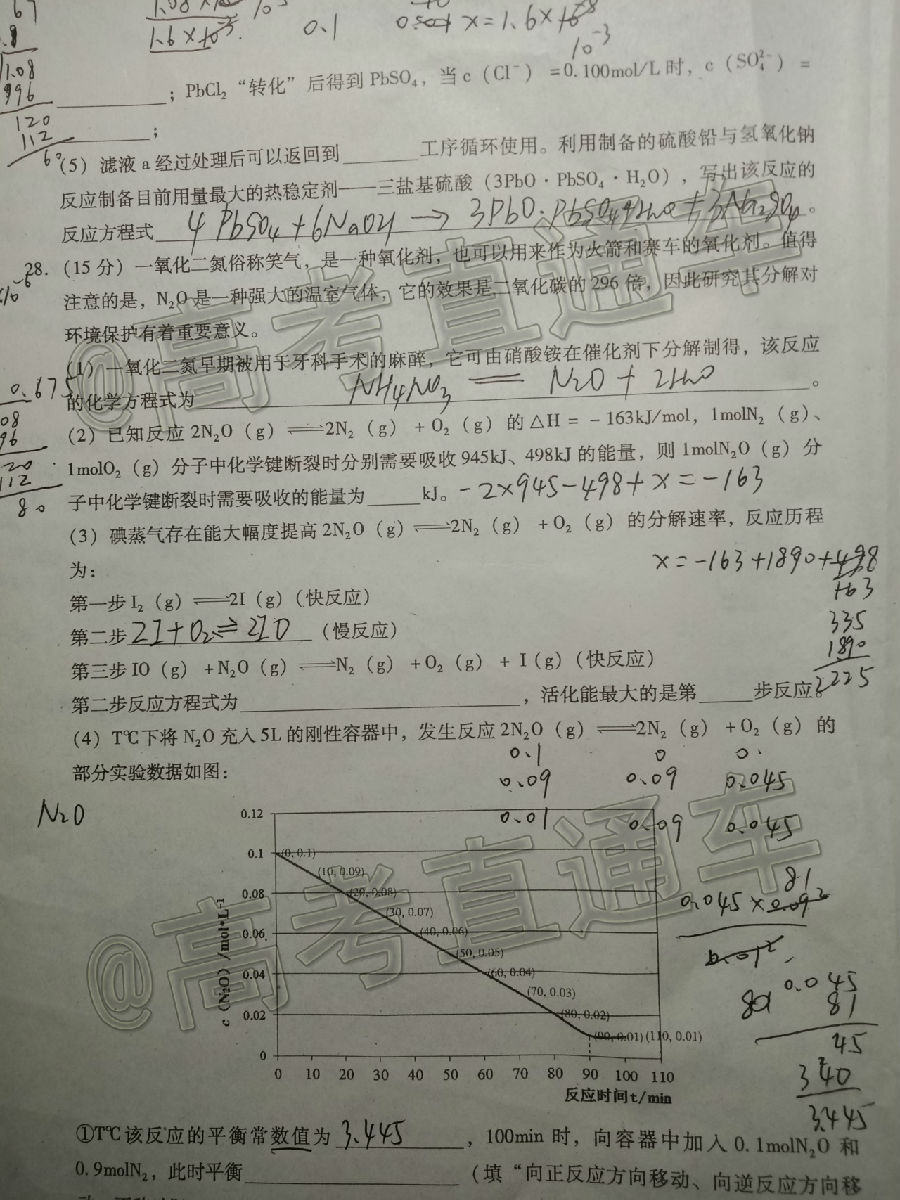 67
1.08×10
10⁻³
1.6×10⁻³
0.1
x=1.6×10⁻³
1.08
996
120
112
______；PbCl₂“转化”后得到PbSO₄，当c（Cl⁻）=0.100mol/L时，c（SO₄²⁻）=
______；
（5）滤液a经过处理后可以返回到______工序循环使用。利用制备的硫酸铅与氢氧化钠
反应制备目前用量最大的热稳定剂——三盐基硫酸（3PbO·PbSO₄·H₂O），写出该反应的
反应方程式 4PbSO₄+6NaOH→3PbO·PbSO₄·H₂O+3Na₂SO₄。
28.（15分）一氧化二氮俗称笑气，是一种氧化剂，也可以用来作为火箭和赛车的氧化剂。值得
注意的是，N₂O是一种强大的温室气体，它的效果是二氧化碳的296倍，因此研究其分解对
环境保护有着重要意义。
（1）一氧化二氮早期被用于牙科手术的麻醉，它可由硝酸铵在催化剂下分解制得，该反应
的化学方程式为 NH₄NO₃ = N₂O + 2H₂O。
0.675
08
96
120
112
80
（2）已知反应2N₂O（g）⇌2N₂（g）+O₂（g）的△H=-163kJ/mol，1molN₂（g）、
1molO₂（g）分子中化学键断裂时分别需要吸收945kJ、498kJ的能量，则1molN₂O（g）分
子中化学键断裂时需要吸收的能量为______kJ。-2×945-498+x=-163
（3）碘蒸气存在能大幅度提高2N₂O（g）⇌2N₂（g）+O₂（g）的分解速率，反应历程
为：
x=-163+1890+498
第一步I₂（g）⇌2I（g）（快反应）
第二步 2I+O₂⇌2IO （慢反应）
335
1890
2225
第三步IO（g）+N₂O（g）⇌N₂（g）+O₂（g）+I（g）（快反应）
第二步反应方程式为______，活化能最大的是第______步反应。
（4）T℃下将N₂O充入5L的刚性容器中，发生反应2N₂O（g）⇌2N₂（g）+O₂（g）的
部分实验数据如图：
0.1 0 0.
0.09 0.09 0.045
0.01 0.09 0.045
N₂O
c（N₂O）/mol•L⁻¹
0.12
0.1
0.08
0.06
0.04
0.02
0
(0, 0.1)
(10, 0.09)
(20, 0.08)
(30, 0.07)
(40, 0.06)
(50, 0.05)
(60, 0.04)
(70, 0.03)
(80, 0.02)
(90, 0.01)
(110, 0.01)
0 10 20 30 40 50 60 70 80 90 100 110
反应时间t/min
81
0.045×0.09²
0.01²
0.045
81
45
340
3.445
①T℃该反应的平衡常数值为 3.445 ，100min时，向容器中加入0.1molN₂O和
0.9molN₂，此时平衡______（填“向正反应方向移动、向逆反应方向移
@高考直通车
@高考直通车